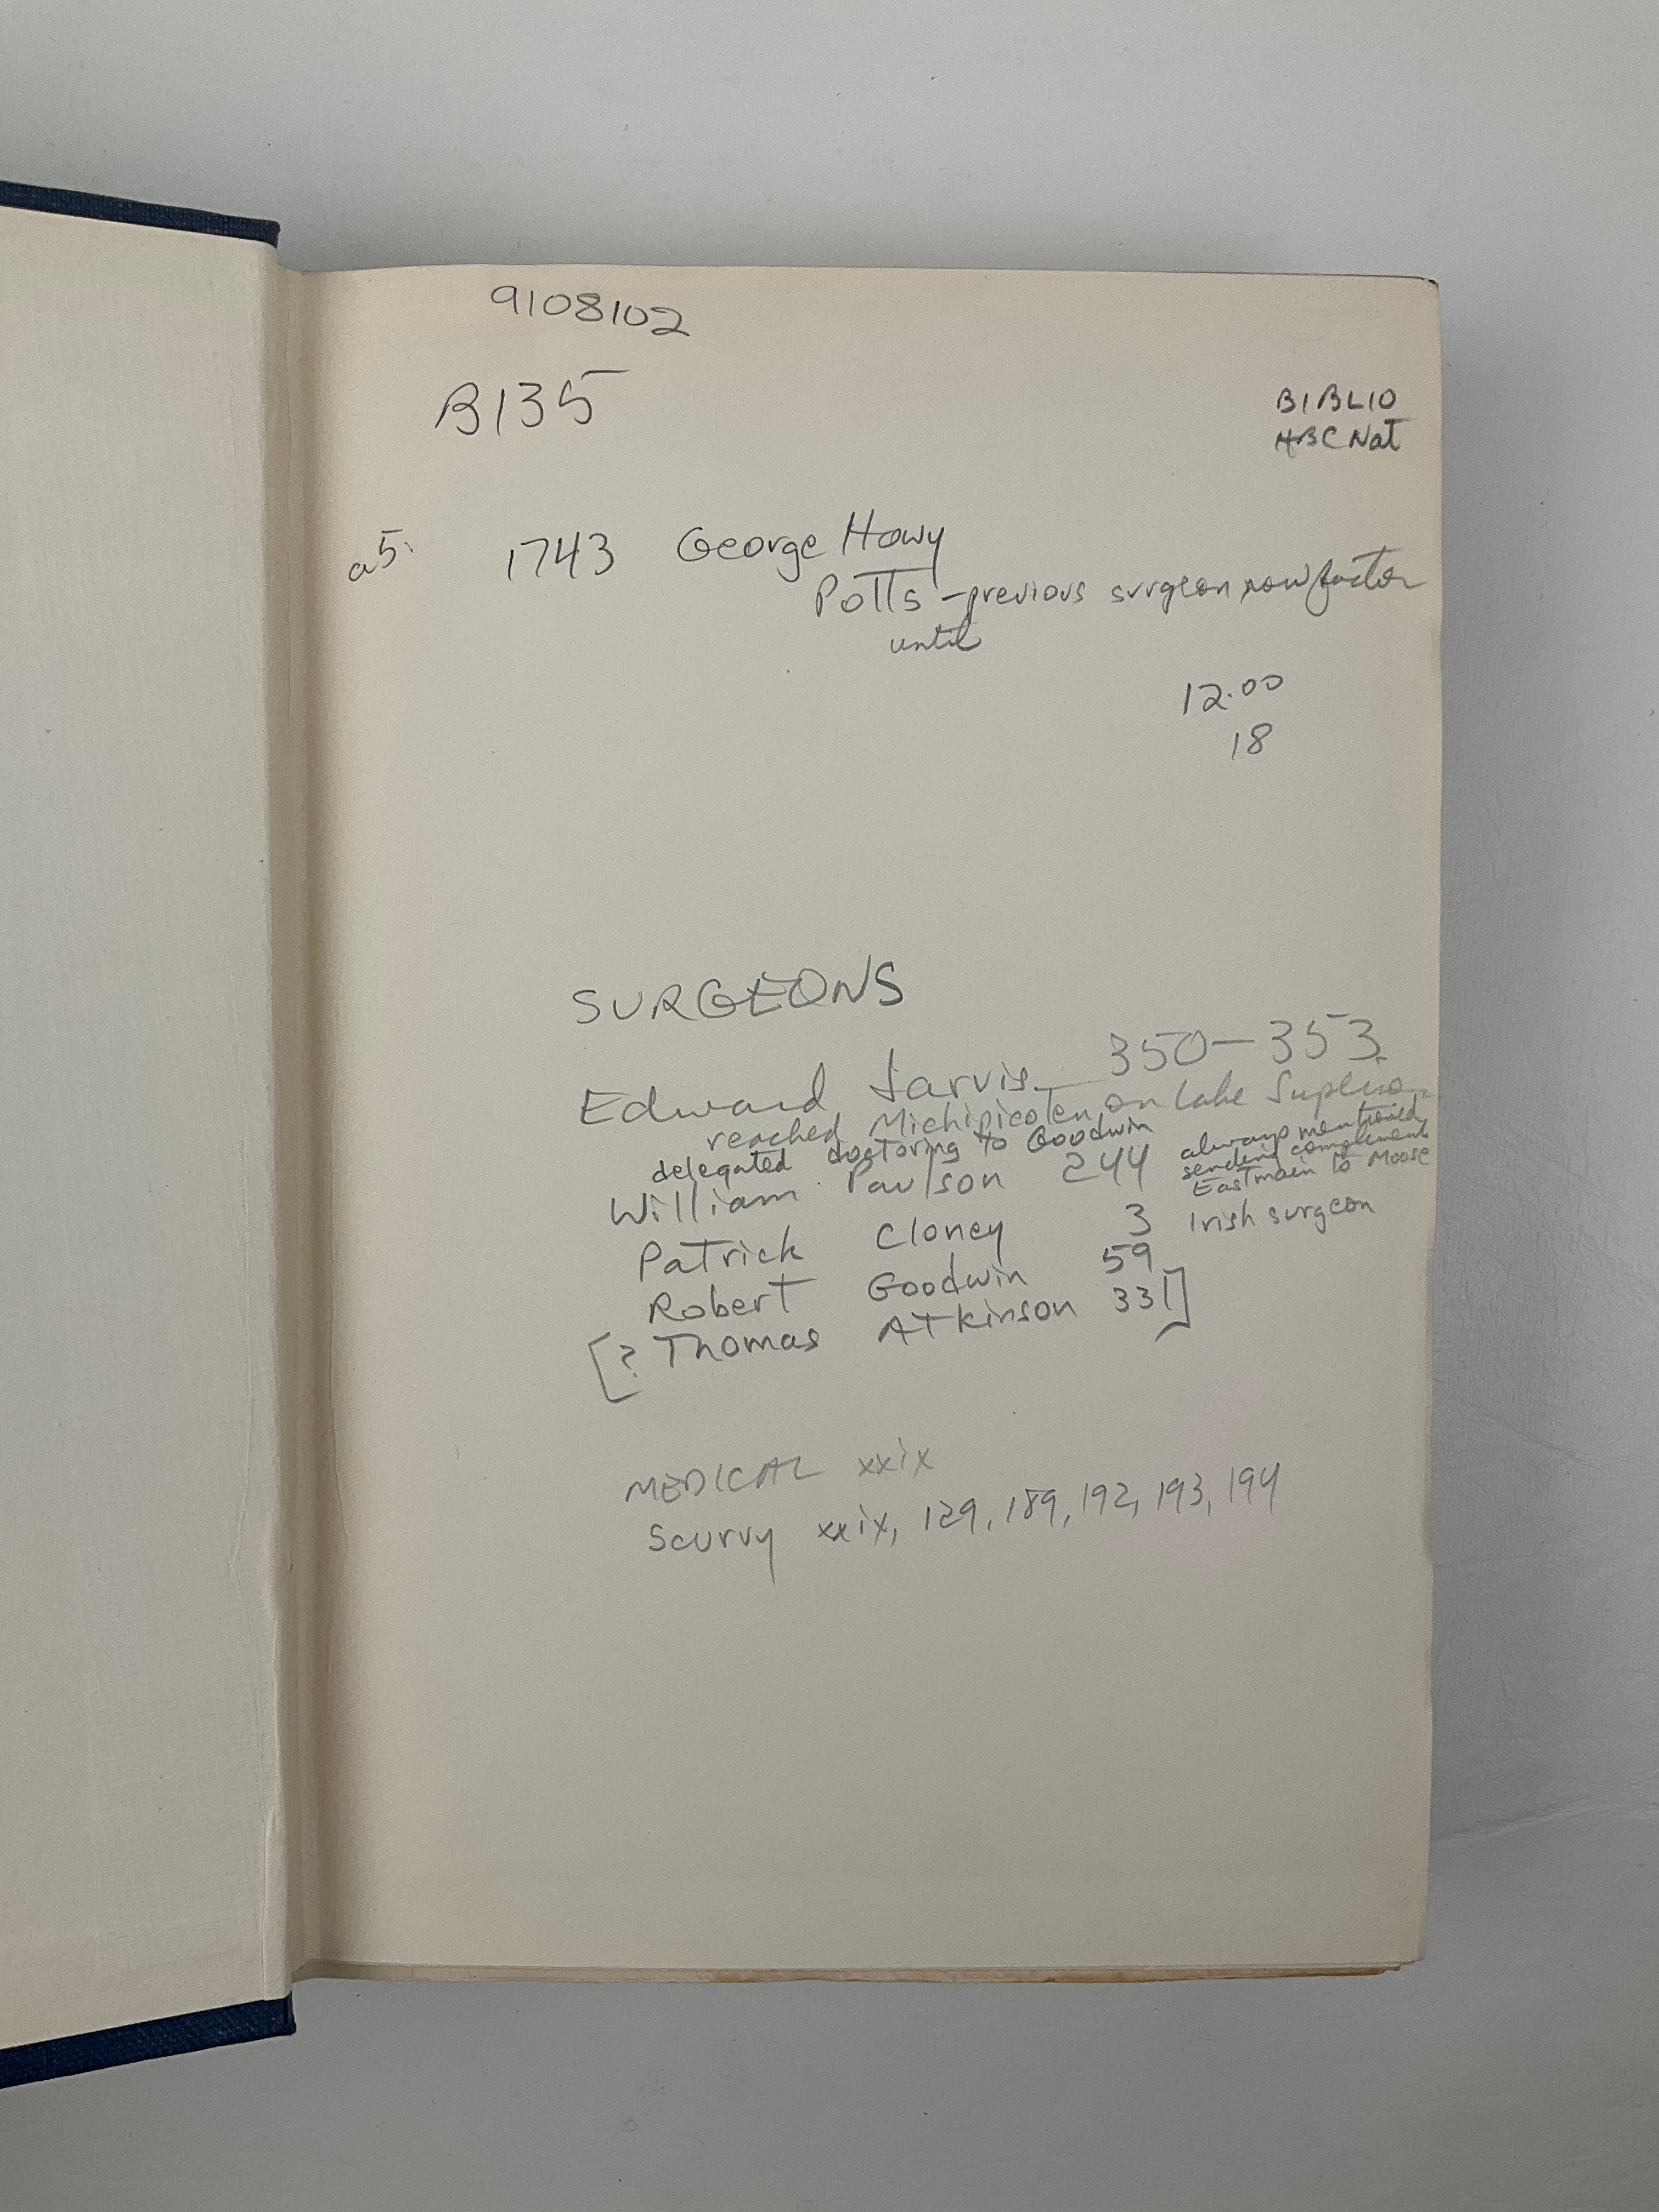 9108102
B135
BIBLIO
HBC Nat
a5.
1743 George Howy
Potts - previous surgeon now factor
until
12.00
18
SURGEONS
Edward Jarvis 350-353
reached Michipicoten on Lake Superior
delegated doctoring to Goodwin
William Paulson 244 always mentioned
sending complement
Eastmain to Moose
Patrick Cloney 3 Irish surgeon
Robert Goodwin 59
[? Thomas Atkinson 331]
MEDICAL xxix
Scurvy xxix, 129, 189, 192, 193, 194